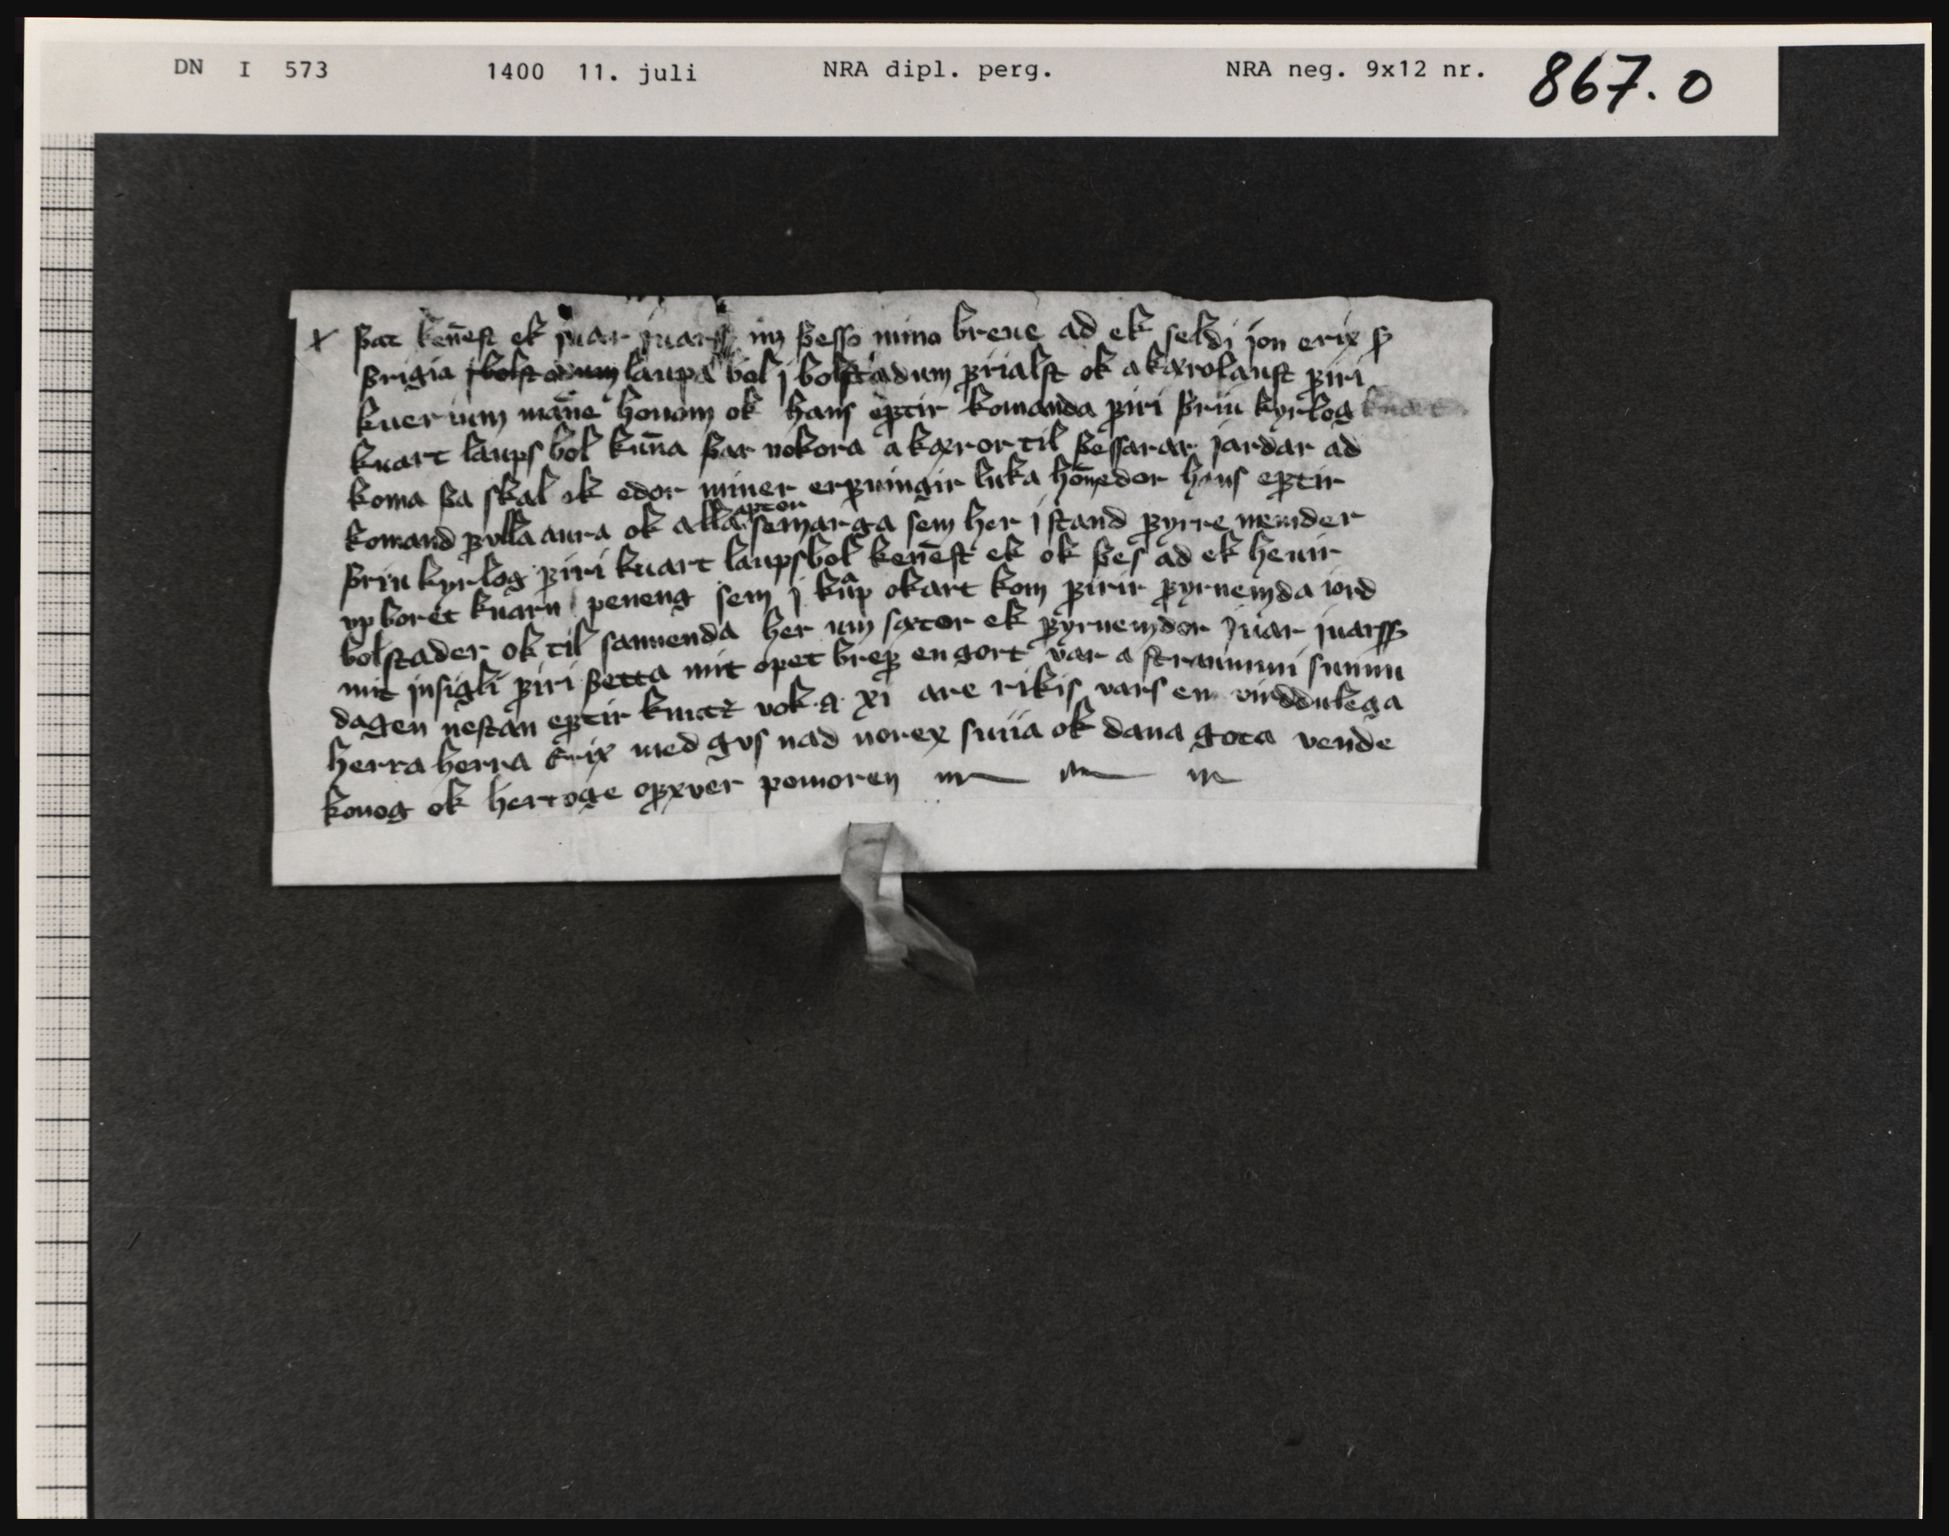 DN I 573 1400 11. juli NRA dipl. perg. NRA neg. 9x12 nr. 867.0
þat ken̄est ek juar juarss̄ m; þesso mino breue ad ek seldi jon erix ꝩ
þrigia laupa bol j bolstadum ꝩrialst ok akærolaust ꝩiri
kuerium man̄e honom ok hans eꝩtir komanda ꝩiri þriu kyrlog
kuart laups bol kun̄a þar nokora akæror til þessarar jardar ad
koma þa skal ek edor miner erꝩuingir luka hon̄ edor hans eꝩtir
komand ꝩulla aura ok alla aptor semarga sem her j stand ꝩyrre nemder
þriu kyrlog ꝩiri kuart laupsbol ken̄est ek ok þes ad ek heuir
vp boret kuarn peneng sem j kaup okart kom ꝩirir ꝩyrnemda iord
bolstader ok til sannenda her um sæter ek ꝩyrnemder juar juarss̄
mit insigli ꝩiri þetta mit opet breꝩ en gort var a straumimi sunnu
dagen nestan eꝩtir knutz vok a xi are rikis vars en virddulega
herra herra erix med gvs nad norex suiia ok dana gota vende
konog ok hertoge oꝩver pomoren